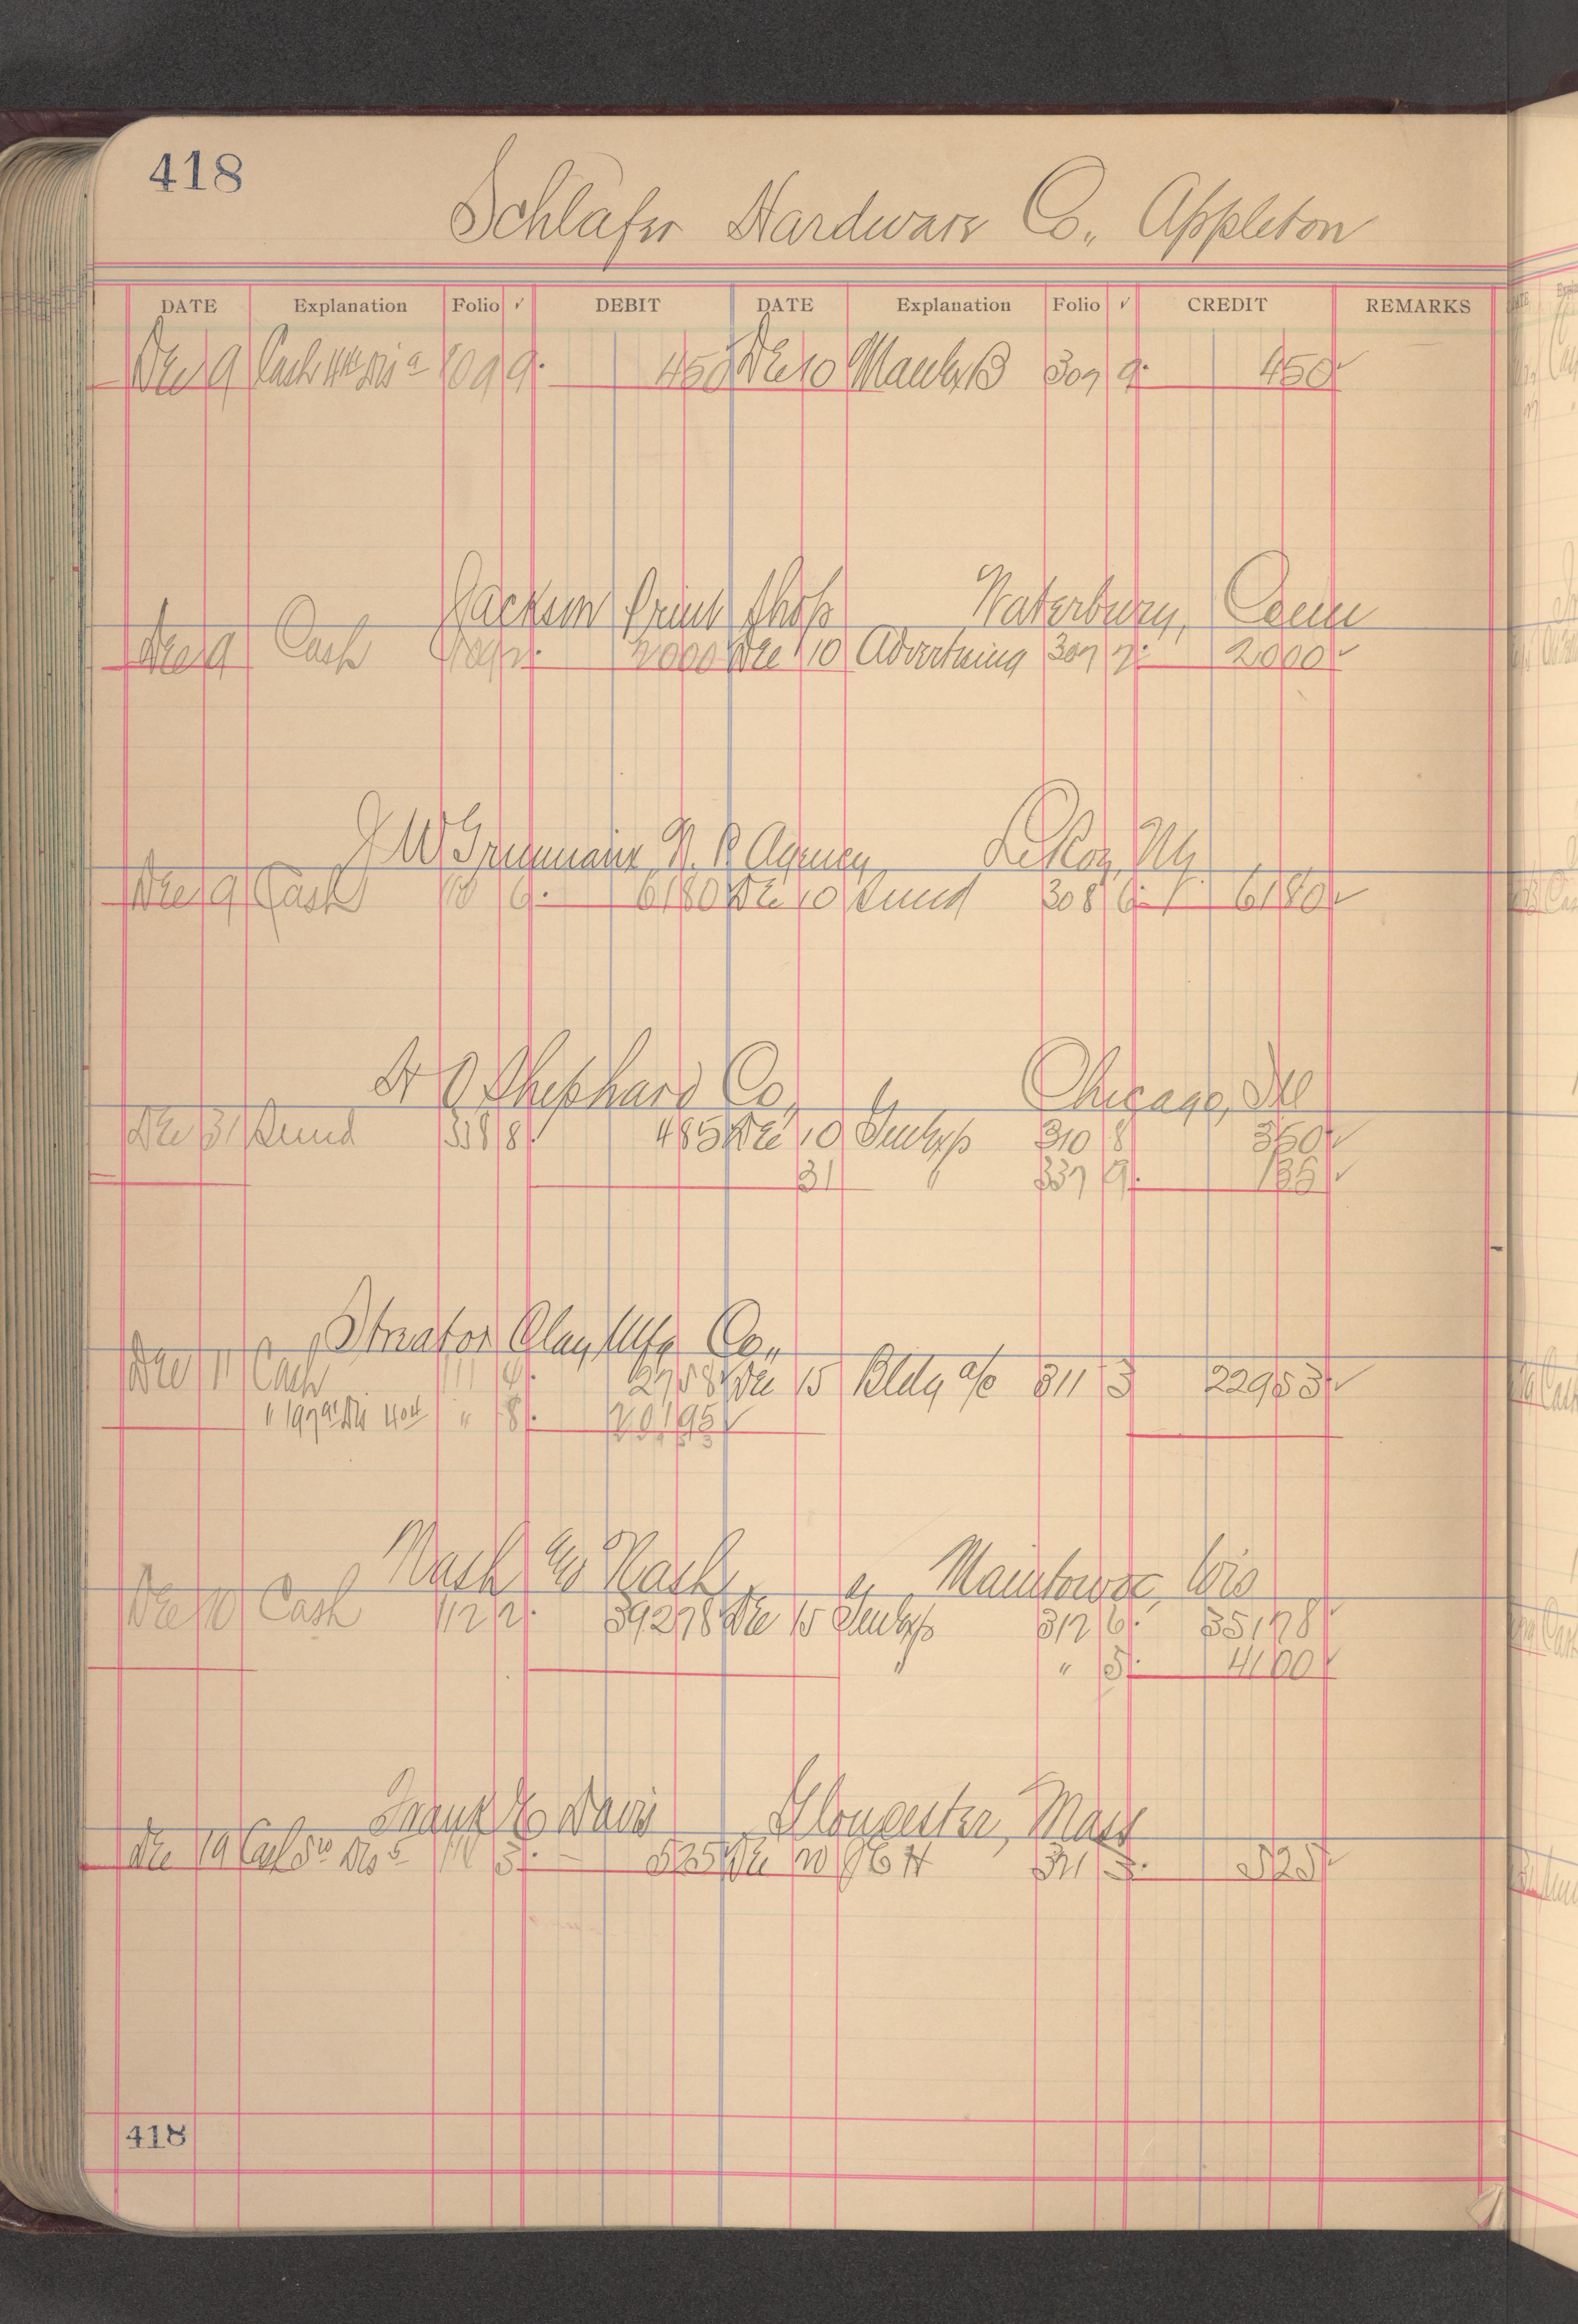 418
Schlafer Hardware Co., Appleton
DATE Explanation Folio ✓ DEBIT DATE Explanation Folio ✓ CREDIT REMARKS
Dec 9 Cash 109 9 450 Dec 10 307 9 450 ✓
Jackson Print Shop Waterbury, Conn
Dec 9 Cash 2000 Dec 10 Advertising 307 7 2000 ✓
J W N. P. Agency LeRoy, NY
Dec 9 Cash 110 6 6180 Dec 10 Sund 308 6 6180 ✓
H O Shephard Co. Chicago, Ill
Dec 31 Sund 338 8 485 Dec 10 310 8 350 ✓
31 " 337 9 135 ✓
Streator Clay Mfg Co.,
Dec 11 Cash 111 4 2758 ✓ Dec 15 Bldg a/c 311 3 22953 ✓
" " 8 20195 ✓
Nash & Nash Manitowoc, Wis
Dec 10 Cash 112 2 39278 Dec 15 312 6 35178 ✓
" " 5 4100 ✓
Frank E Davis Gloucester, Mass
Dec 19 3 525 Dec 20 321 3 525 ✓
418